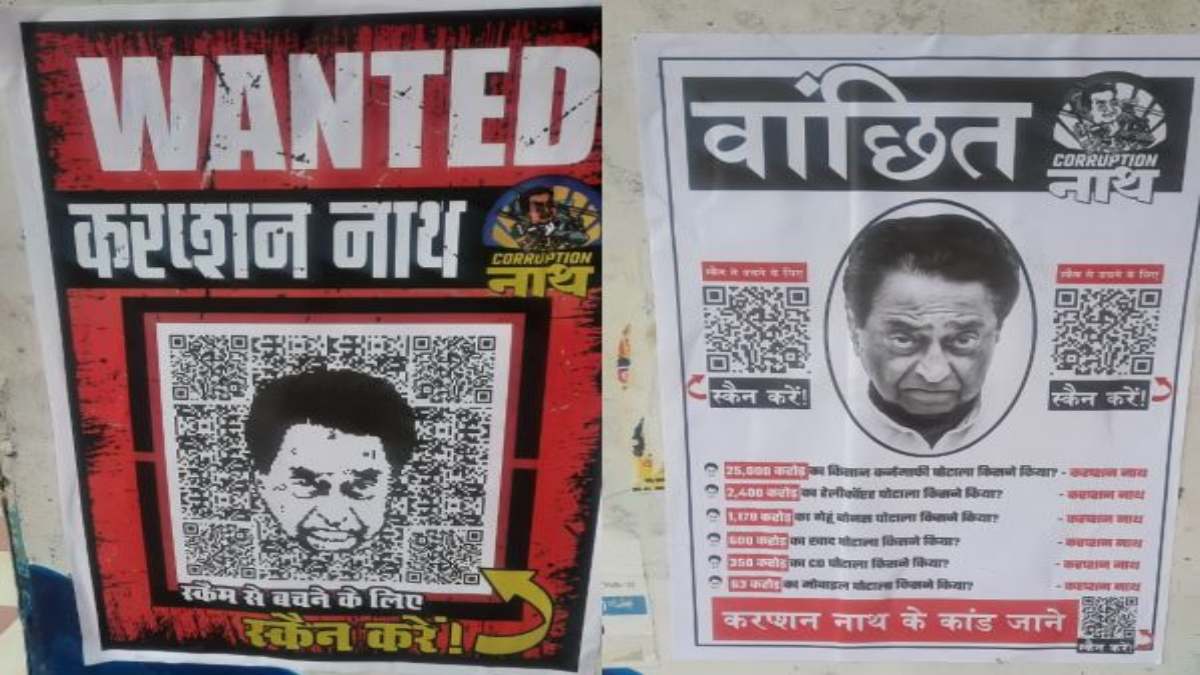 WANTED
करप्शन नाथ
CORRUPTION
नाथ
स्कैम से बचने के लिए
स्कैन करें!
वांछित
CORRUPTION
नाथ
स्कैम से बचने के लिए
स्कैन करें!
स्कैम से बचने के लिए
स्कैन करें!
25,000 करोड़ का किसान कर्जमाफी घोटाला किसने किया? - करप्शन नाथ
2,400 करोड़ का हेलीकॉप्टर घोटाला किसने किया? - करप्शन नाथ
1,178 करोड़ का गेहूं बोनस घोटाला किसने किया? - करप्शन नाथ
600 करोड़ का खाद घोटाला किसने किया? - करप्शन नाथ
350 करोड़ का CD घोटाला किसने किया? - करप्शन नाथ
53 करोड़ का मोबाइल घोटाला किसने किया? - करप्शन नाथ
करप्शन नाथ के कांड जाने
स्कैन करें!